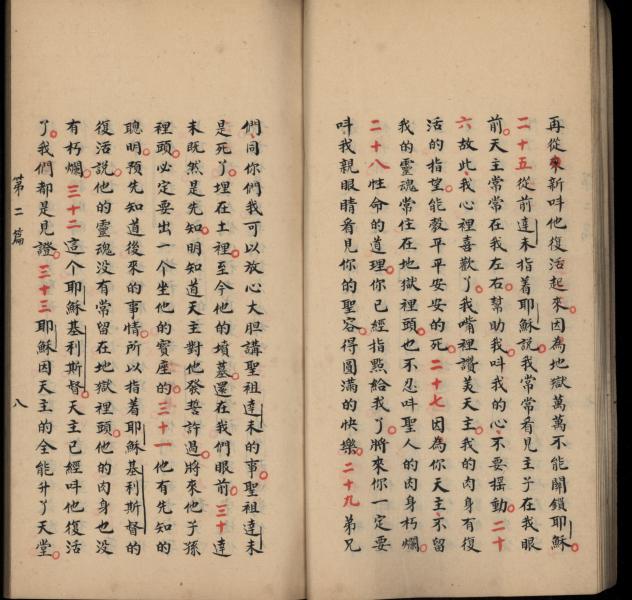 再從來新呌他復活起來因為地獄萬萬不能關鎖耶穌
二十五從前達未指着耶穌說我常常看見主子在我眼
前天主常常在我左右幫助我呌我的心不要搖動二十
六故此我心裡喜歡了我嘴裡讚美天主我的肉身有復
活的指望能彀平平安安的死二十七因為你天主不留
我的靈魂常住在地獄裡頭也不忍呌聖人的肉身朽爛
二十八性命的道理你已經指點給我了將來你一定要
呌我親眼睛看見你的聖容得圓滿的快樂二十九弟兄
們同你們我可以放心大胆講聖祖達未的事聖祖達未
是死了埋在土裡至今他的墳墓還在我們眼前三十達
未既然是先知明知道天主對他發誓許過將來他子孫
裡頭必定要出一个坐他的寶座的三十一他有先知的
聰明預先知道後來的事情所以指着耶穌基利斯督的
復活說他的靈魂沒有常留在地獄裡頭他的肉身也沒
有朽爛三十二這个耶穌基利斯督天主已經呌他復活
了我們都是見證三十三耶穌因天主的全能升了天堂
第二篇 八